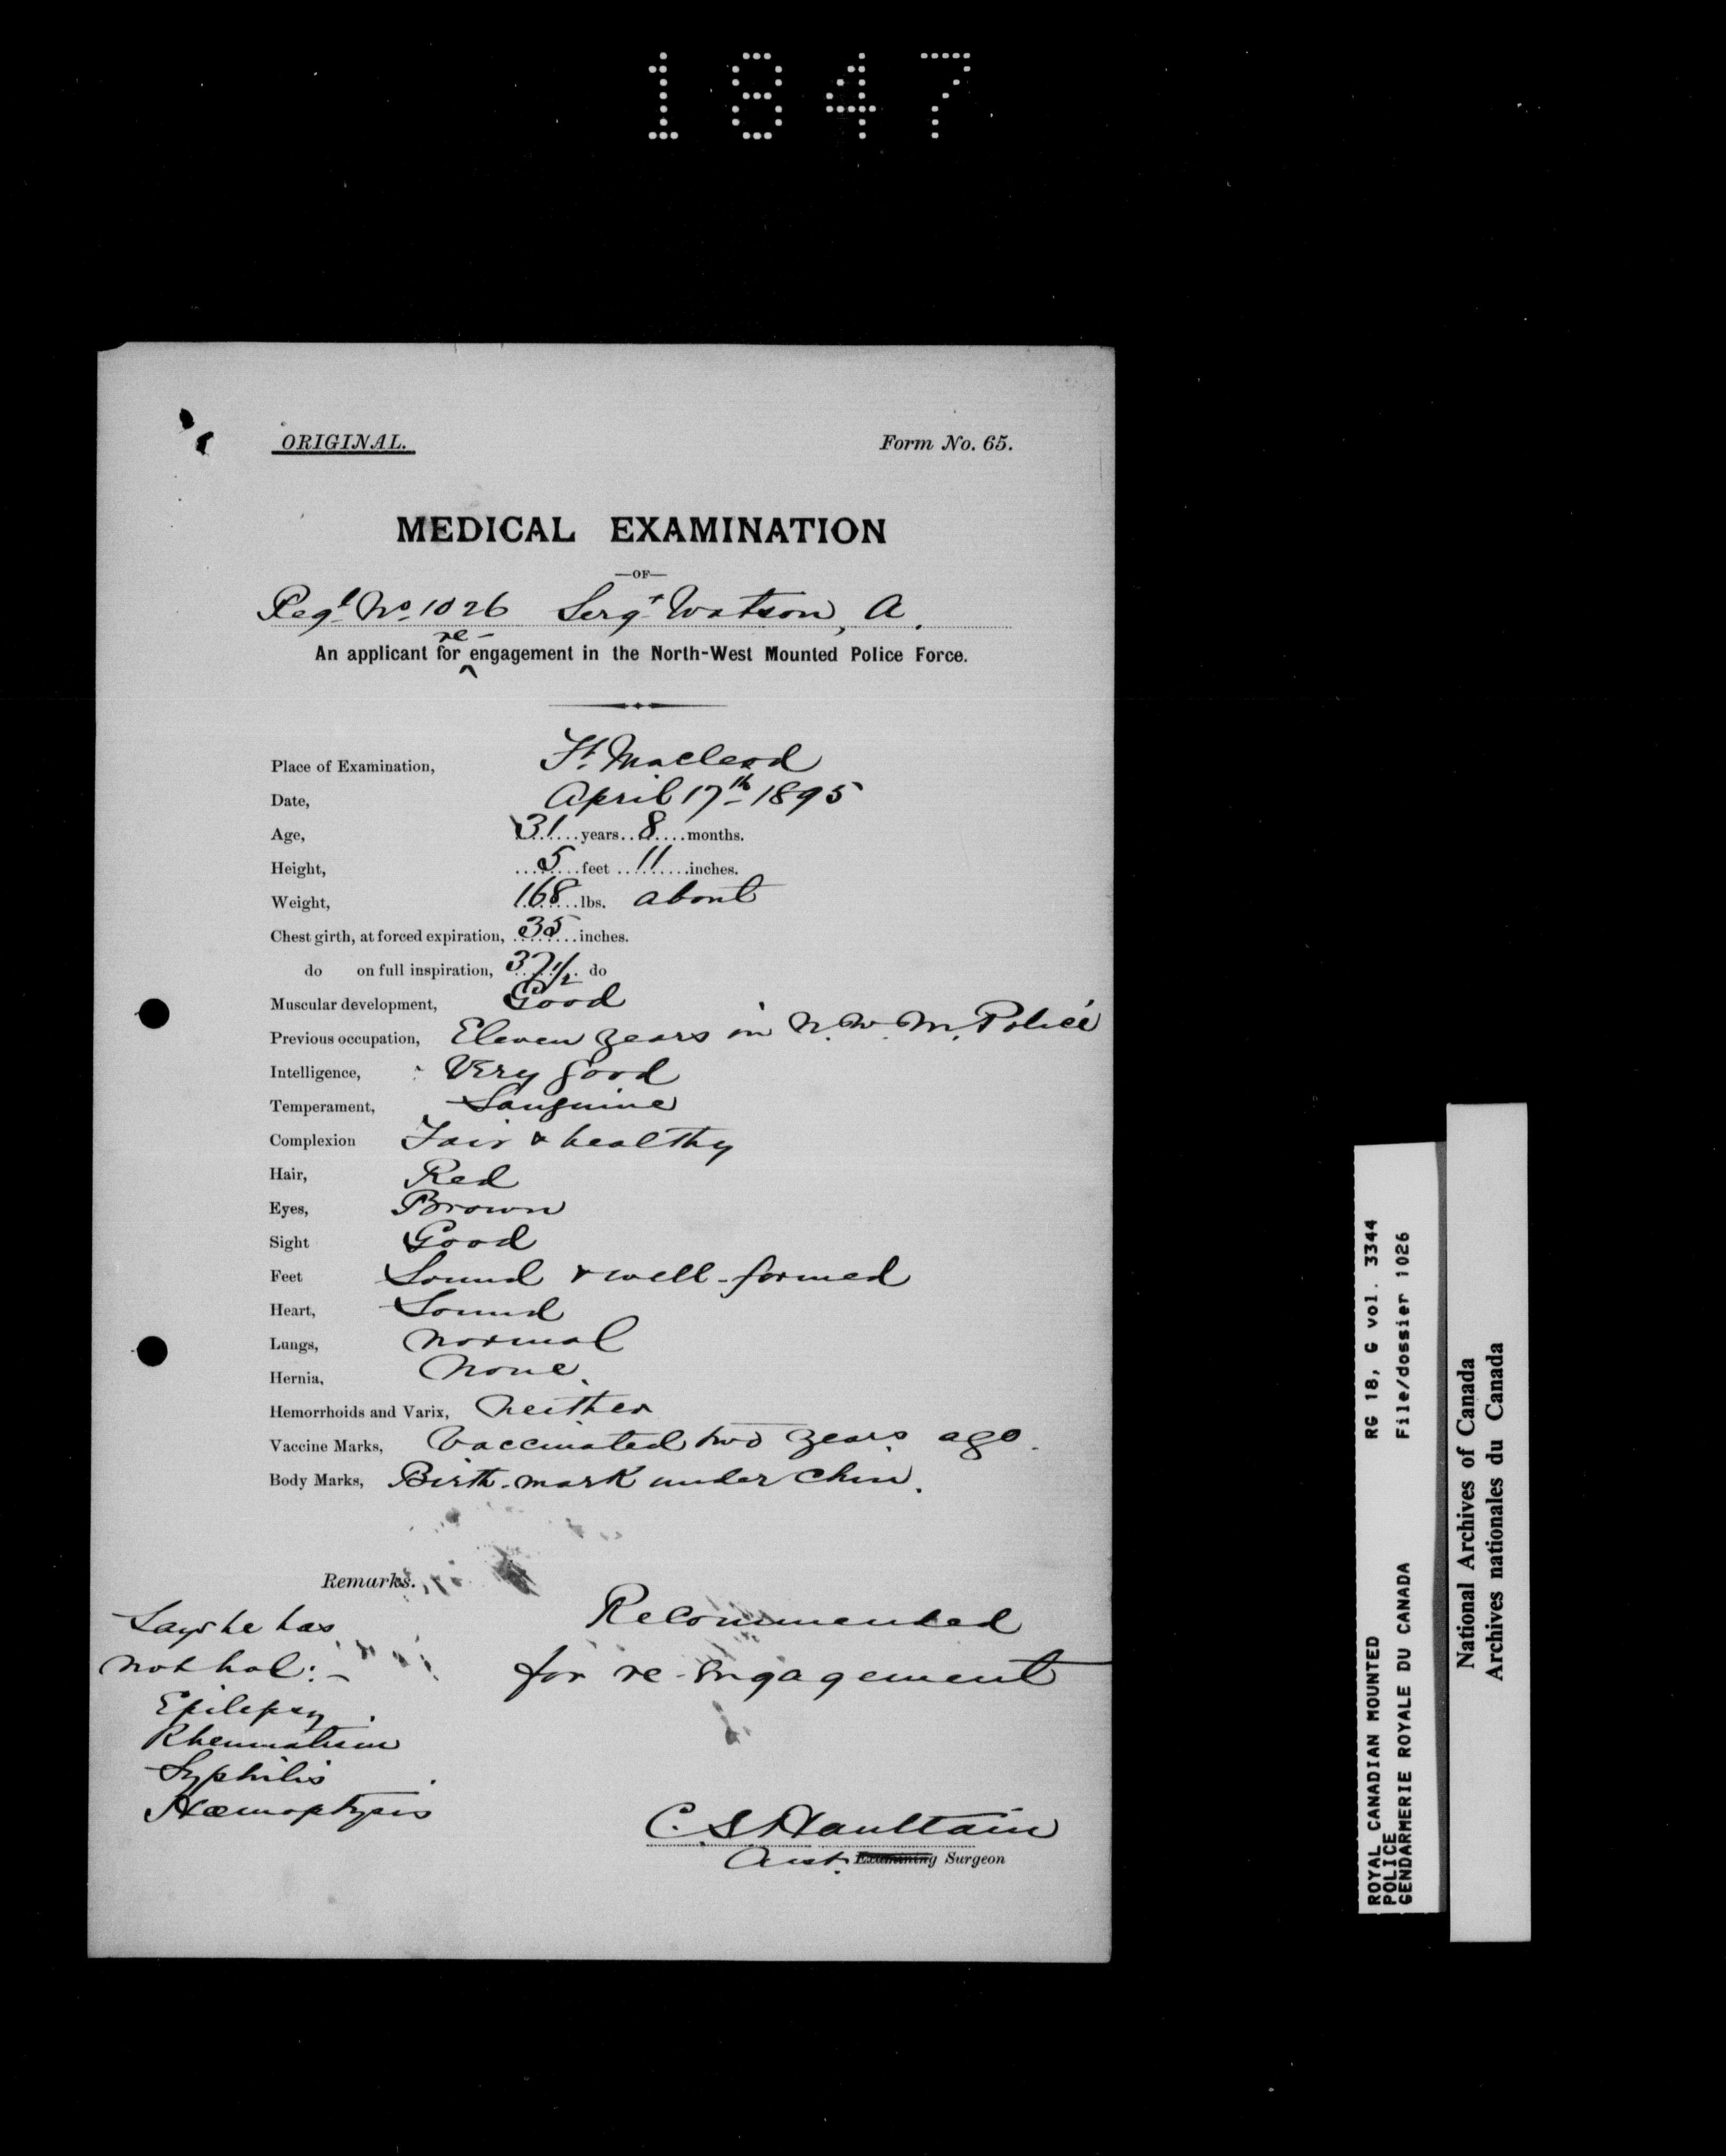 1847
ORIGINAL.
Form No. 65.
MEDICAL EXAMINATION
—OF—
Regl. No. 1026 Sergt Watson, A.
re-
An applicant for ^ engagement in the North-West Mounted Police Force.
Place of Examination, Ft. Macleod
Date, April 17th 1895
Age, 31 years 8 months.
Height, 5 feet 11 inches.
Weight, 168 lbs. about
Chest girth, at forced expiration, 35 inches.
do on full inspiration, 37 1/2 do
Muscular development, Good
Previous occupation, Eleven years in N. W. M. Police
Intelligence, Very good
Temperament, Sanguine
Complexion Fair & healthy
Hair, Red
Eyes, Brown
Sight Good
Feet Sound & well-formed
Heart, Sound
Lungs, Normal
Hernia, None.
Hemorrhoids and Varix, Neither
Vaccine Marks, Vaccinated two years ago.
Body Marks, Birth-mark under chin.
Remarks.
Says he has
not had:-
Epilepsy
Rheumatism
Syphilis
Hæmoptysis
Recommended
for re-engagement
C. S. Haultain
Asst. Examining Surgeon
ROYAL CANADIAN MOUNTED RG 18, G vol. 3344
POLICE
GENDARMERIE ROYALE DU CANADA File/dossier 1026
National Archives of Canada
Archives nationales du Canada